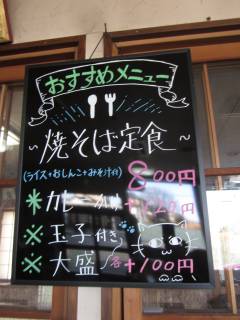 おすすめメニュー
~焼そば定食~
(ライス+おしんこ+みそ汁付) 800円
※カレーがけ +120円
※玉子付き
※大盛 各+100円